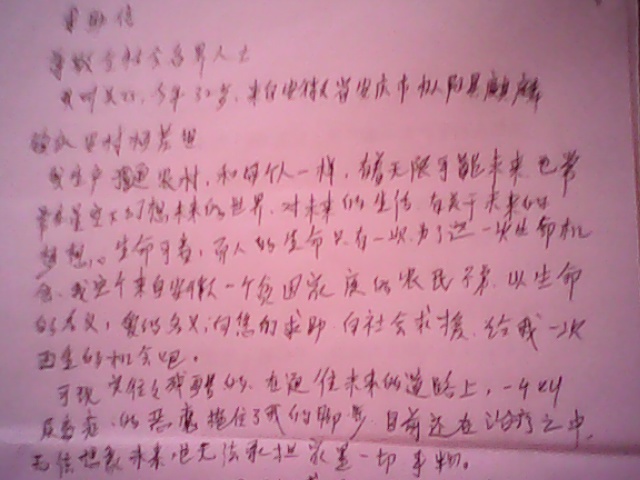 求助信
尊敬的社会各界人士
我叫 今年32岁，来自安徽省安庆市枞阳县麒麟
镇 村
我生户普通农村，和每个人一样，有着无限可能未来 也常
常在星空下幻想未来的世界，对未来的生活 有关于未来的
梦想，生命可贵，而人的生命只有一次 为了这一次生命机
会，我这个来自安徽一个贫困家庭的农民子弟 以生命
的名义，爱的名义，向您们求助 向社会求援 给我一次
重生的机会吧。
可现实往往残酷的，在通往未来的道路上，一
的恶魔拖住了我的脚步 目前还在治疗之中，
无法想象未来，也无法承担家里一切事物。